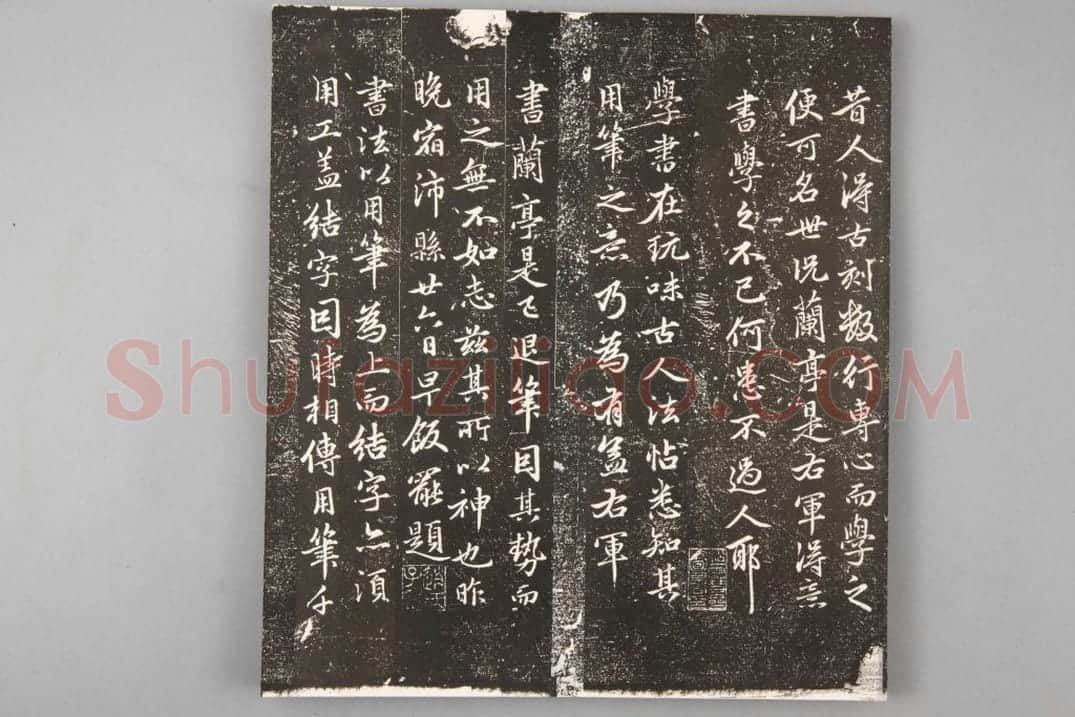 昔人得古刻數行專心而學之
便可名世況蘭亭是右軍得意
書學之不已何患不過人耶
學書在玩味古人法帖悉知其
用筆之意乃為有益右軍
書蘭亭是已退筆因其勢而
用之無不如志茲其所以神也昨
晚宿沛縣廿六日早飯罷題
書法以用筆為上而結字亦須
用工盖結字因時相傳用筆千
Shufaziliao.COM